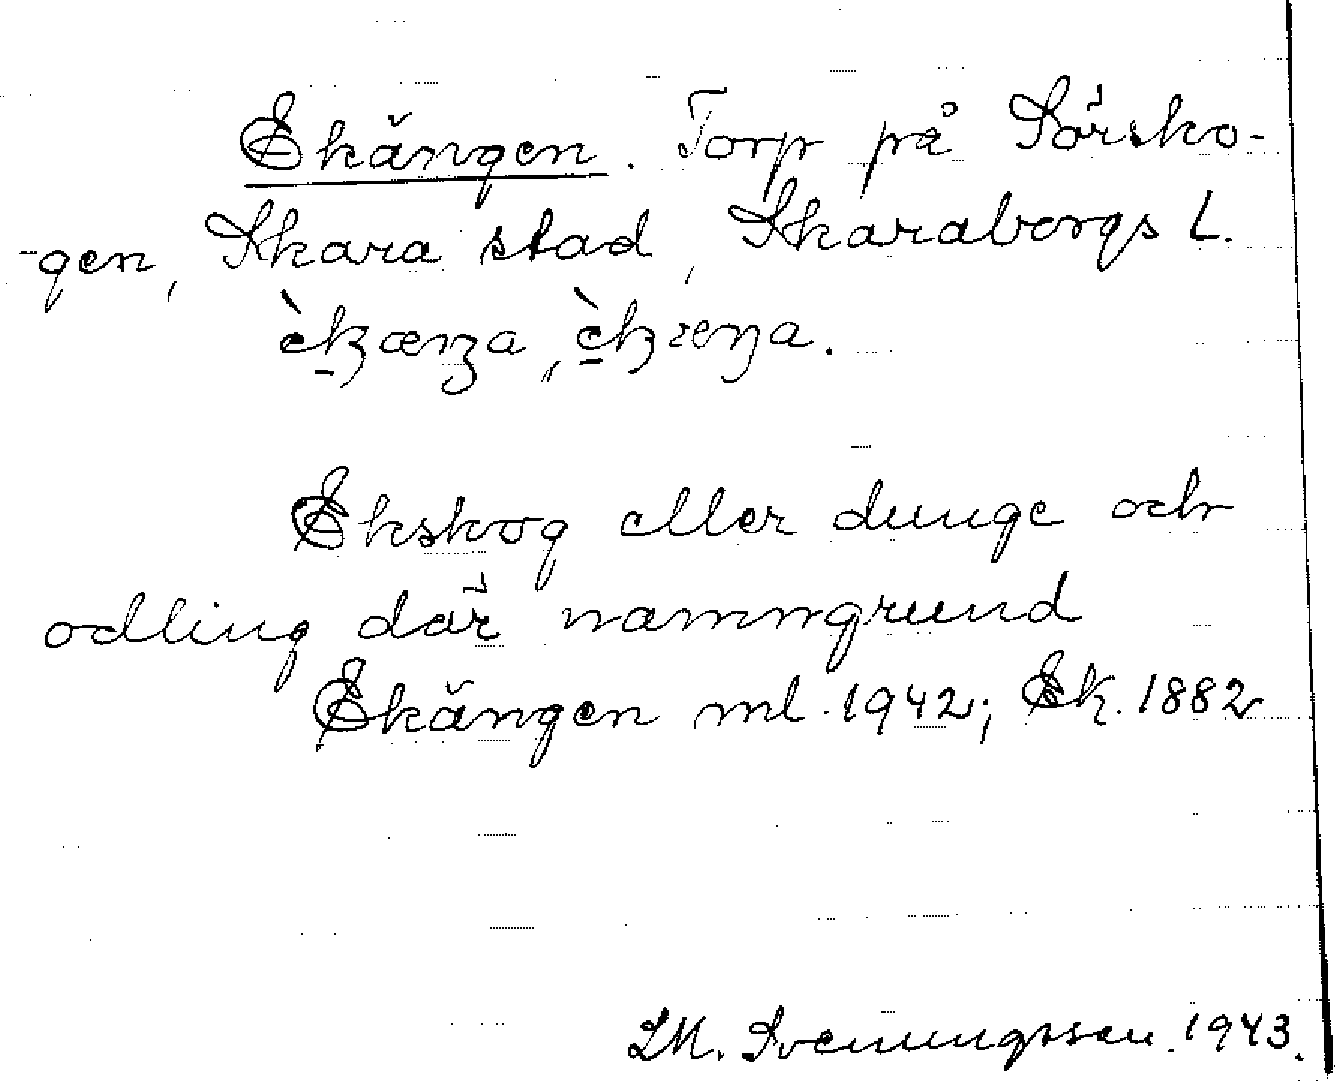 Ekängen. Torp på Sörsko-
-gen, Skara stad, Skarabergs L.
èkæŋa, èkreŋa.
Ekskog eller dunge och
odling där namngrund
Ekängen ml. 1942; Ek. 1882
LM. Svenungsson. 1943.